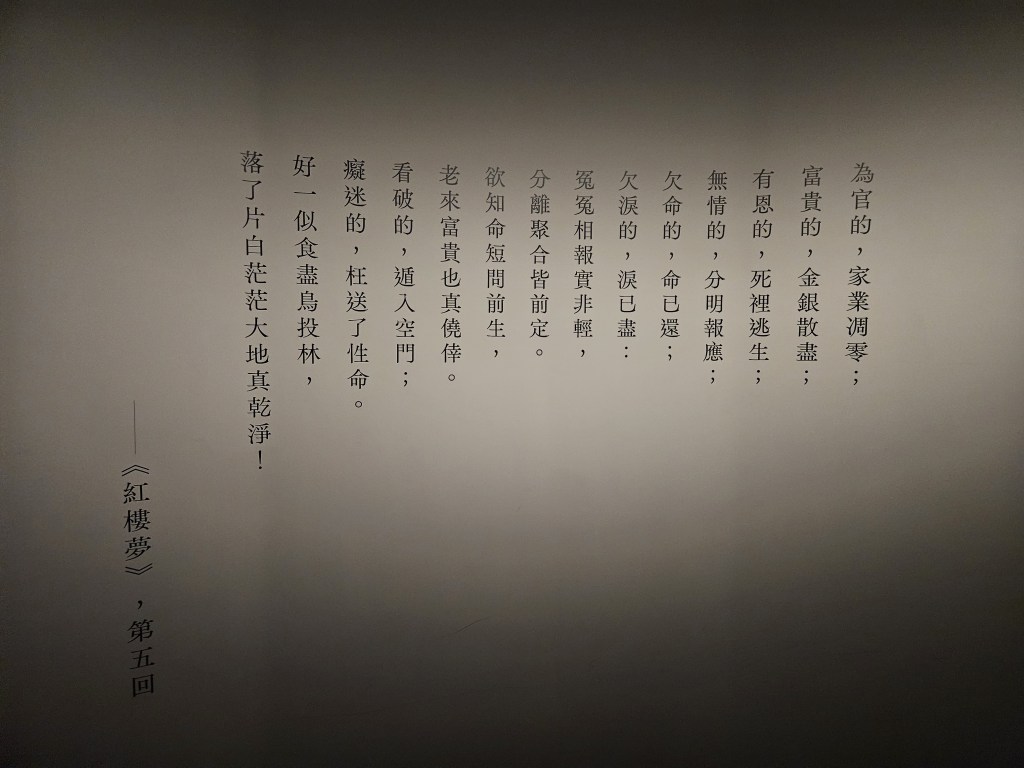 為官的，家業凋零；
富貴的，金銀散盡；
有恩的，死裡逃生；
無情的，分明報應；
欠命的，命已還；
欠淚的，淚已盡：
冤冤相報實非輕，
分離聚合皆前定。
欲知命短問前生，
老來富貴也真僥倖。
看破的，遁入空門；
癡迷的，枉送了性命。
好一似食盡鳥投林，
落了片白茫茫大地真乾淨！
——《紅樓夢》，第五回